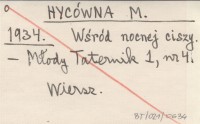 HYCÓWNA M.
1934. Wśród nocnej ciszy.
– Młody Taternik 1, nr 4.
Wiersz.